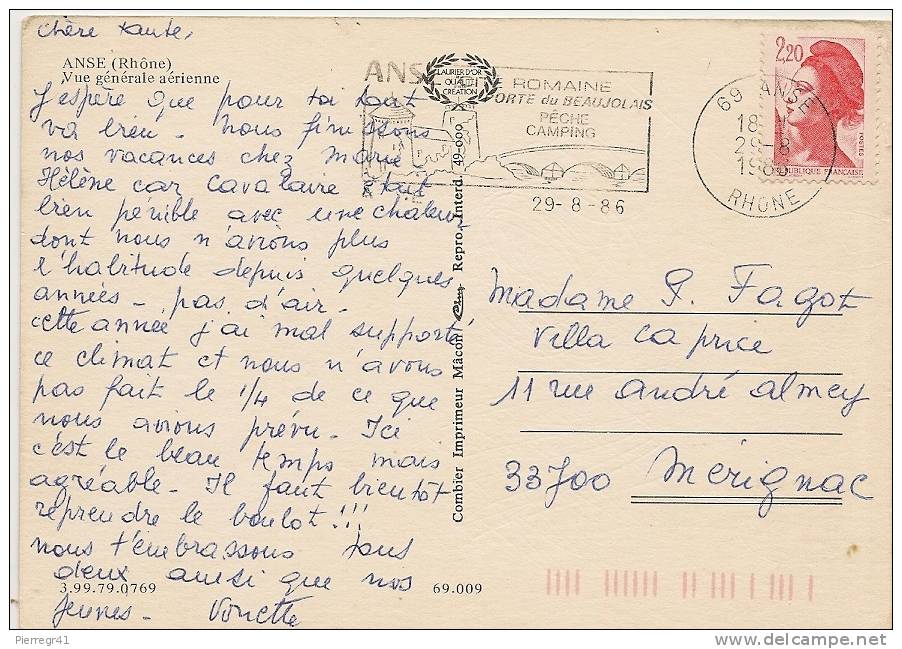 chère tante,
ANSE (Rhône)
Vue générale aérienne
J'espère que pour toi tout
va bien - nous finissons
nos vacances chez Marie
Hélène car Cavalaire était
bien pénible avec une chaleur
dont nous n'avions plus
l'habitude depuis quelques
années - pas d'air -
cette année j'ai mal supporté
ce climat et nous n'avons
pas fait le 1/4 de ce que
nous avions prévu - Ici
c'est le beau temps mais
agréable - Il faut bientôt
reprendre le boulot !!!
nous t'embrassons tous
deux ainsi que nos
jeunes - Vonette
3.99.79.0769
69.009
Combier Imprimeur Mâcon Cim Repro. Interd. 49-000
LAURIER D'OR
QUALITÉ
CREATION
ANSE
ROMAINE
PORTE du BEAUJOLAIS
PÊCHE
CAMPING
29-8-86
69 ANSE
18
29-8
1986
RHONE
2,20
POSTES
REPUBLIQUE FRANÇAISE
Madame P. Fagot
Villa caprice
11 rue andré almey
33700 Mérignac
Pierregr41
www.delcampe.net